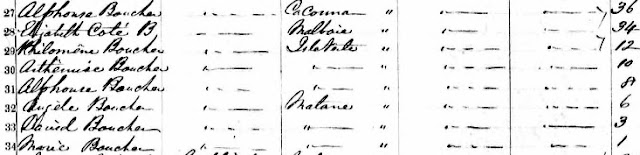 27 Alphonse Boucher " — — Cacouna " — — — — 36
28 Elizabeth Coté B — — Malbaie " — — — — 34
29 Philomène Boucher " — — Isle Verte " — — — — 12
30 Boucher " — — " — " — — — — 10
31 Alphonse Boucher " — — " — " — — — — 8
32 Angèle Boucher " — — Matane " — — — — 6
33 David Boucher " — — " — " — — — — 3
34 Marie Boucher " — — " — " — — — — 1